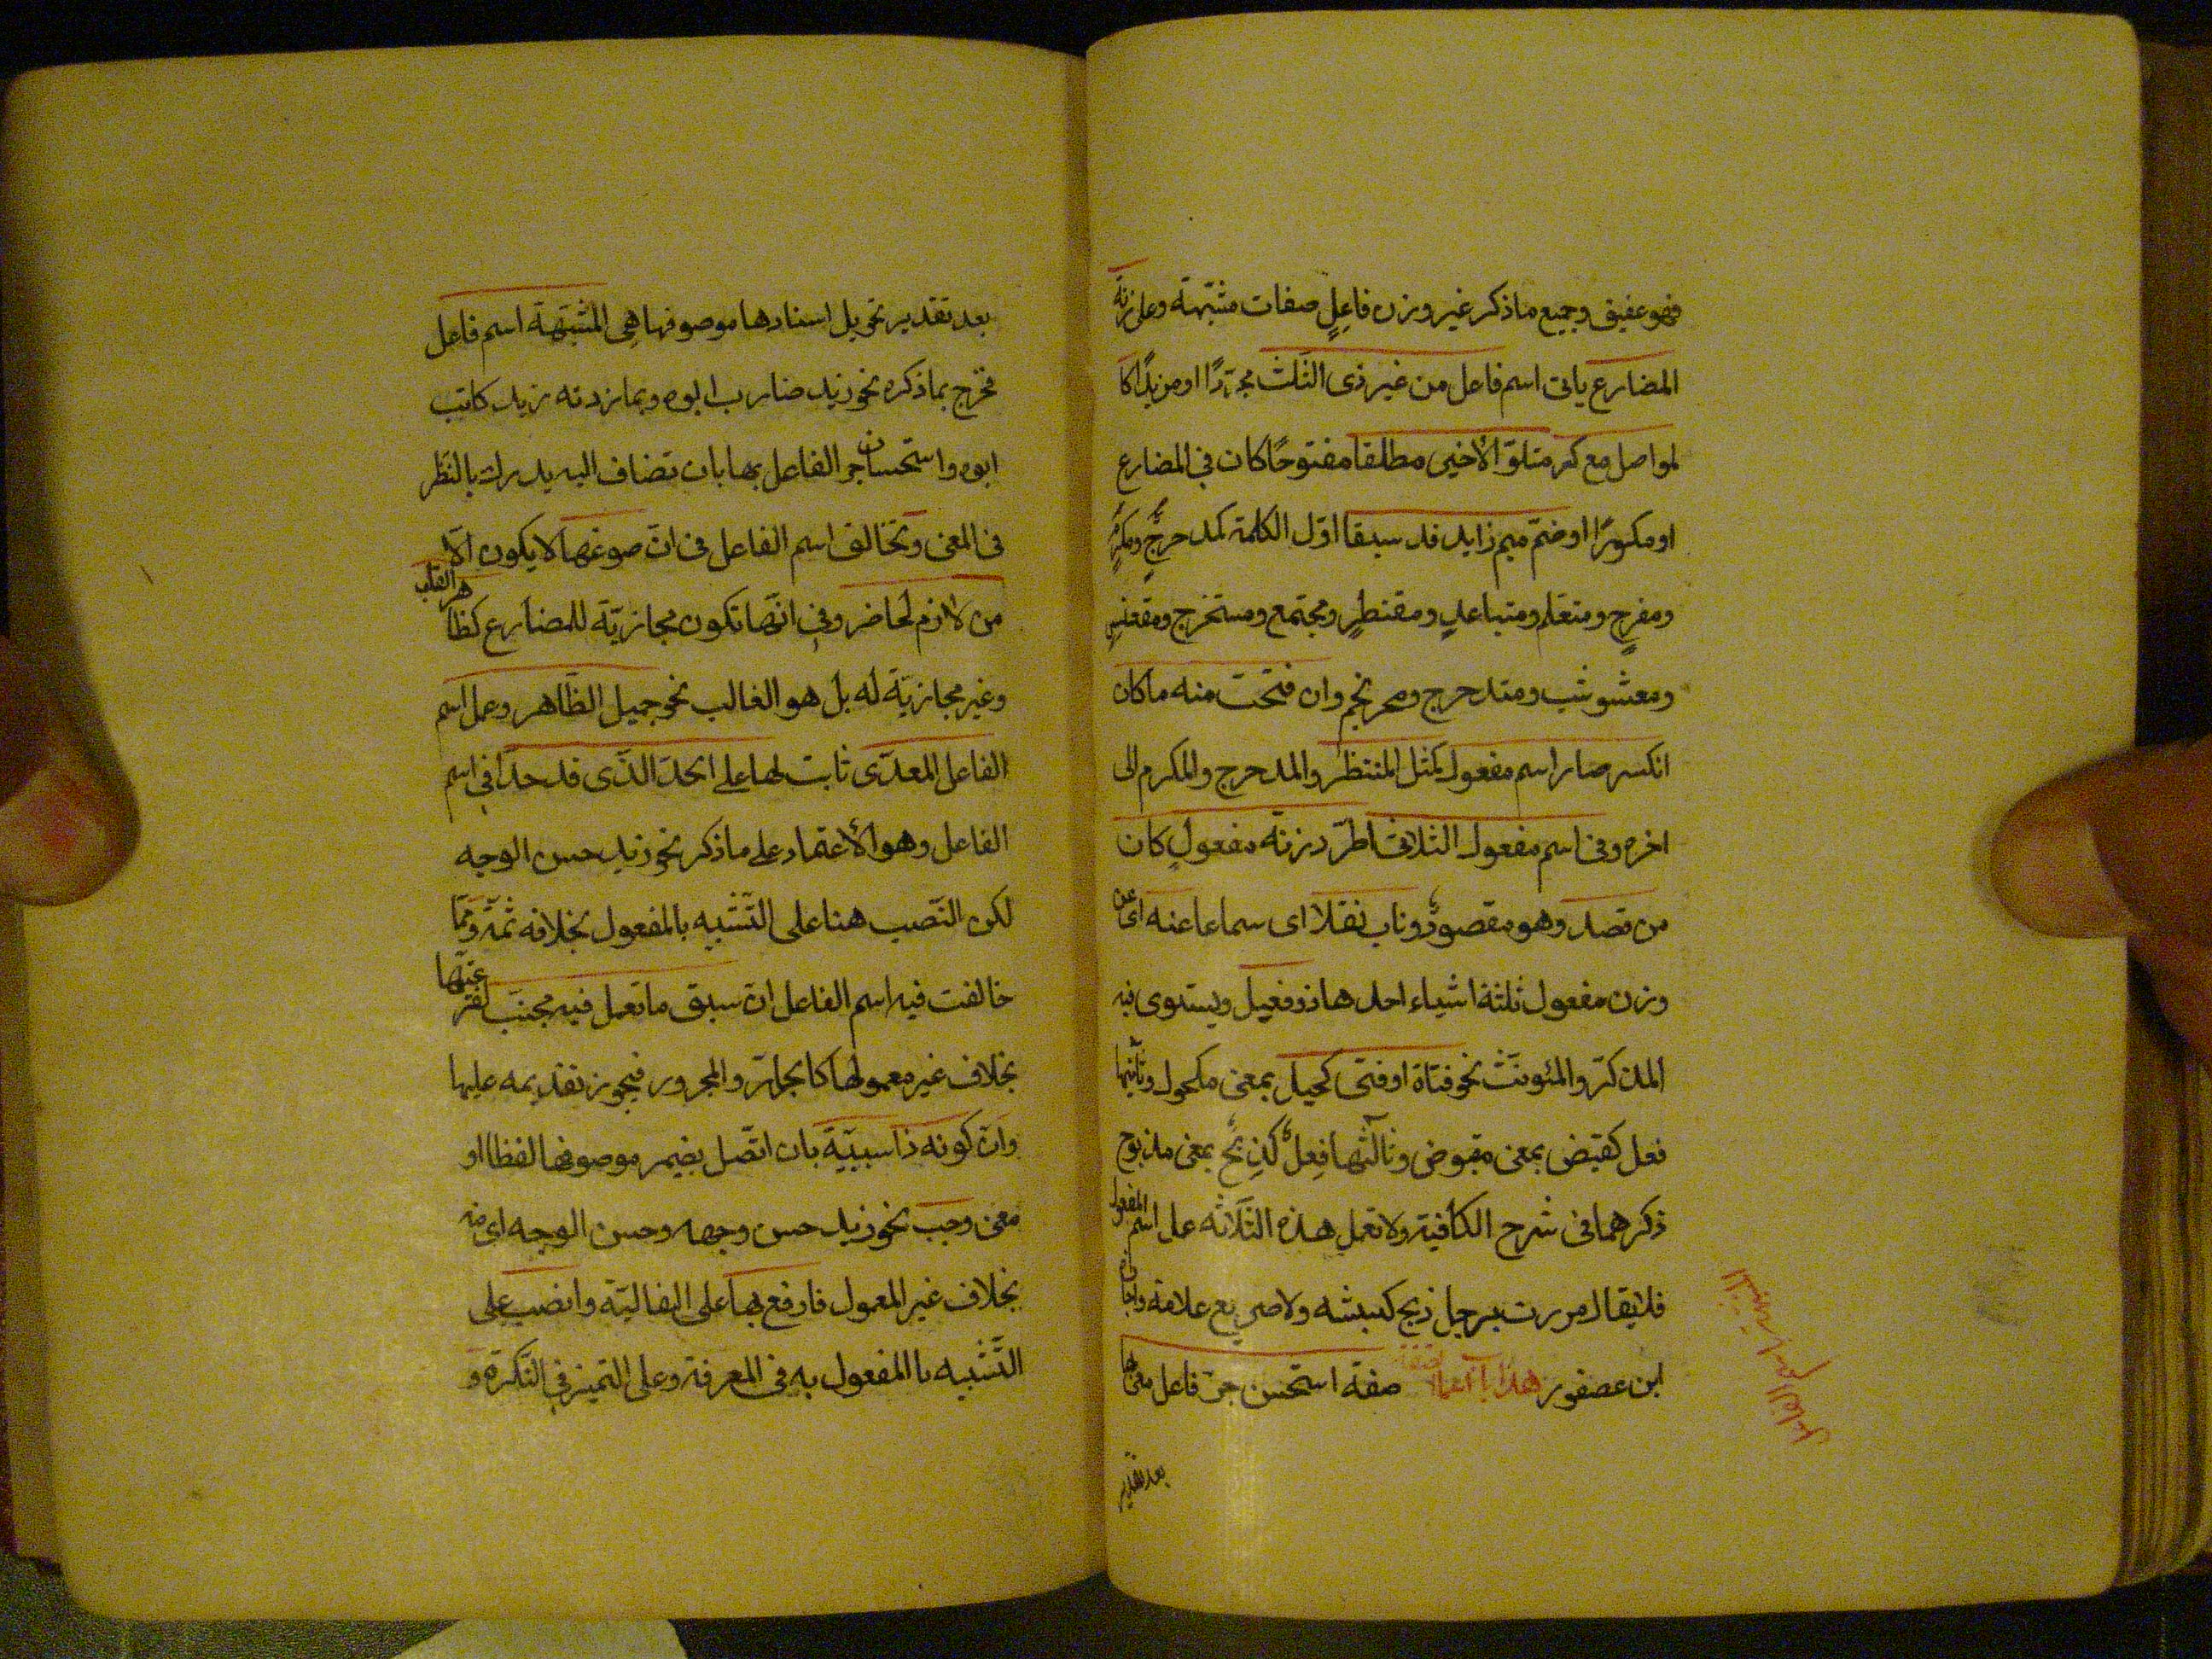 فهو عفيق وجميع ماذكر غير وزن فاعِلٍ صفات مشبّهة وعلى زنة
المضارع ياتى اسم فاعل من غير ذى الثّلث مجرّدًا او مزيدًا كا
لمواصل مع كسر متلوّ الأخير مطلقا مفتوحًا كان في المضارع
او مكسورًا او ضمّ ميم زايد قد سبقا اوّل الكلمة كمدحرجٍ ومكرمٍ
ومفرحٍ ومتعلم ومتباعدٍ ومقنطرٍ ومجتمع ومستخرج ومقعنسٍ
ومعشوشب ومتدحرج ومحرنجم وان فتحت منه ماكان
انكسر صار اسم مفعول كمثل المنتظر والمدحرج والمكرم الى
اخره وفى اسم مفعول الثلاثى اطّرد زنة مفعولٍ كان
من قصد وهو مقصودٌ وناب نقلا اى سماعا عنه اى عن
وزن مفعول ثلثة اشياء احدها ذو فعيل ويستوى فيه
المذكّر والمئونّث نحو فتاة او فتى كحيل بمعنى مكحول وثانيها
فعل كقبض بمعنى مقبوض وثالثها فِعلٌ كذِبحٌ بمعنى مذبوح
ذكرهما فى شرح الكافية ولا تعمل هذه الثّلاثه عمل اسم المفعول
فلا يقال مررت برجل ذبح كبشه ولا صريع غلامه واجازه
ابن عصفور هذا باب اعمال صفة استحسن جرّ فاعل معنىً بها
بعد تقدير
بعد تقدير تحويل اسنادها موصوفها هى المشبّهة اسم فاعل
فخرج بما ذكره نحو زيد ضارب ابوه وبما زدته زيد كاتب
ابوه واستحسان جر الفاعل بها بان تضاف اليه يدرك بالنّظر
فى المعنى وتخالف اسم الفاعل فى انّ صوغها لا يكون الّا
من لازم لحاضر وفى انّها تكون مجازيّة للمضارع كظاهر القلب
وغير مجازيّة له بل هو الغالب نحو جميل الظّاهر وعمل اسم
الفاعل المعدّى ثابت لها على الحدّ الّذى قد حدّا في اسم
الفاعل وهو الأعتماد على ماذكر نحو زيد حسن الوجه
لكن النّصب هنا على التّشبيه بالمفعول بخلافه ثمّة وممّا
خالفت فيه اسم الفاعل ان سبق ما تعمل فيه مجتنب لفرعيّتها
بخلاف غير معمولها كالجار والمجرور فيجوز تقديمه عليها
وانّ كونه ذا سببيّة بان اتّصل بضمير موصوفها لفظا او
معنى وجب نحو زيد حسن وجهه وحسن الوجه اى منه
بخلاف غير المعمول فارفع بها على الفاليّة وانصب على
التّشبيه باالمفعول به فى المعرفة وعلى التميز في النّكرة و